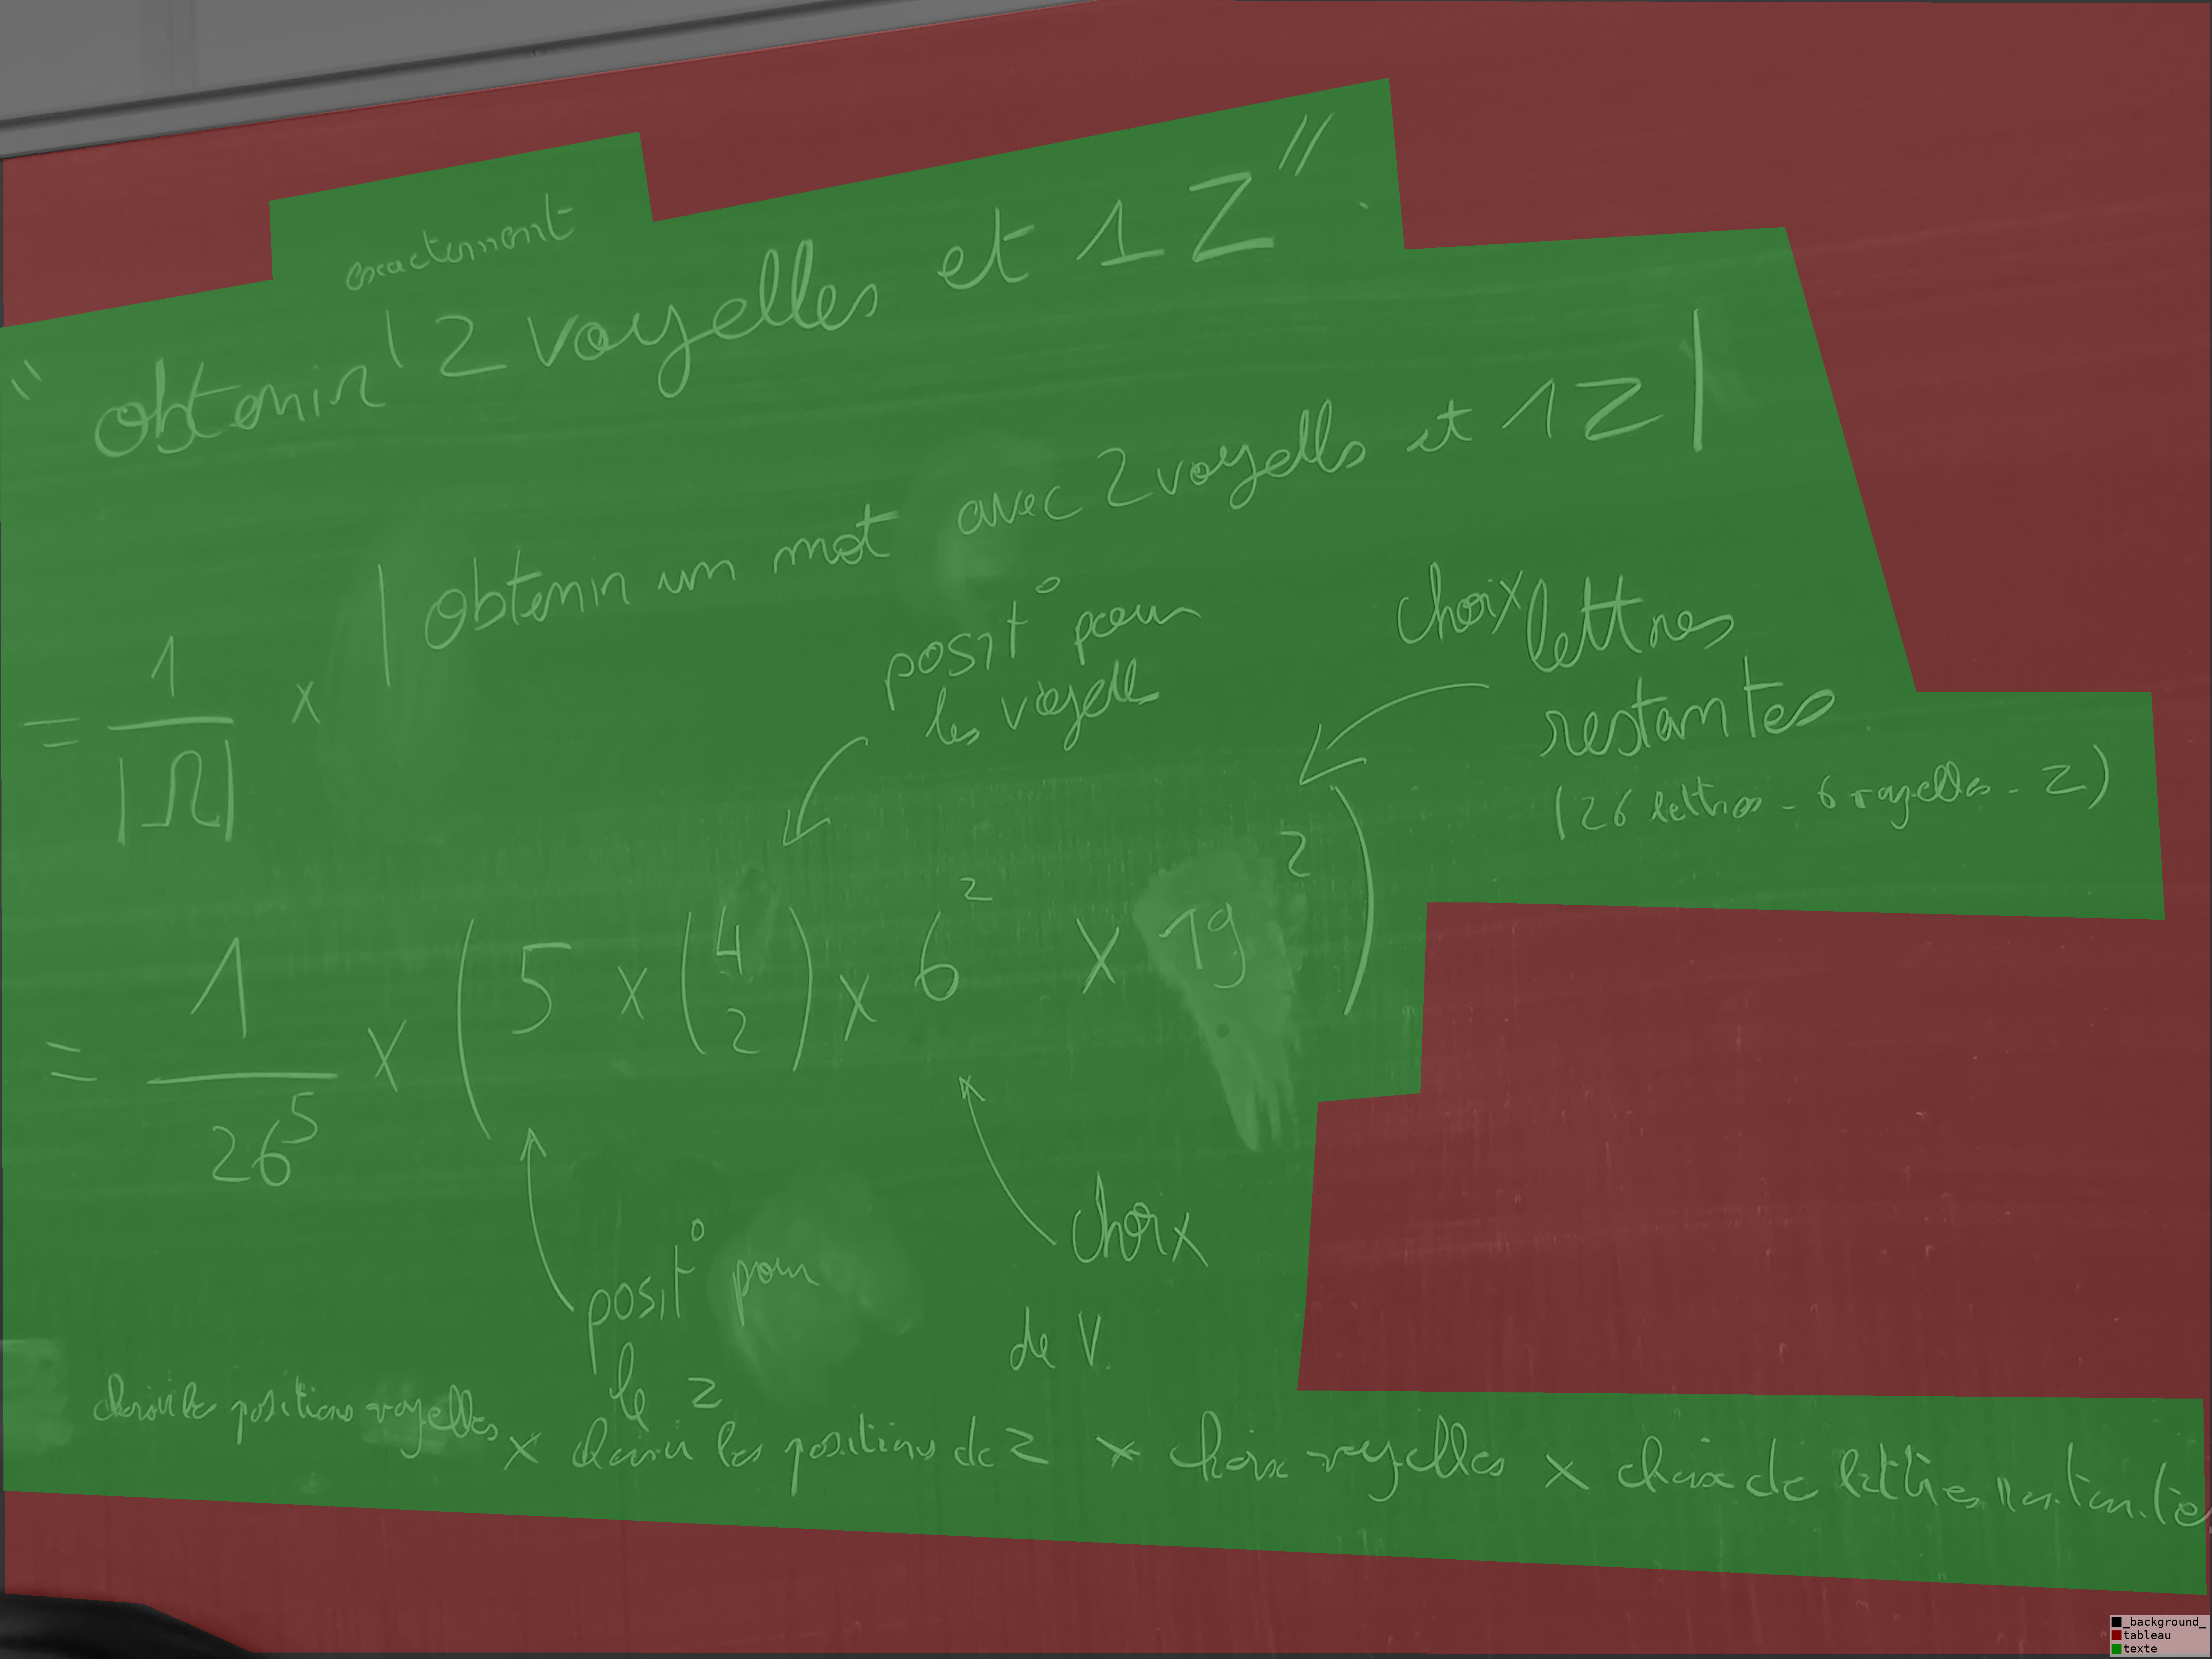 exactement
" obtenir 2 voyelles et 1 Z " .
= 1/|Ω| × | obtenir un mot avec 2 voyells et 1 Z |
posit° pour
les voyell
choix lettres
restantes
(26 lettres - 6 voyelles - Z)
= 1/26^5 × ( 5 × (4 2) × 6^2 × 19^2 )
posit° pour
le Z
choix
de V.
choisir les positions voyelles × choisir les positions de Z × choix voyelles × choix de lettres restante
_background_
tableau
texte